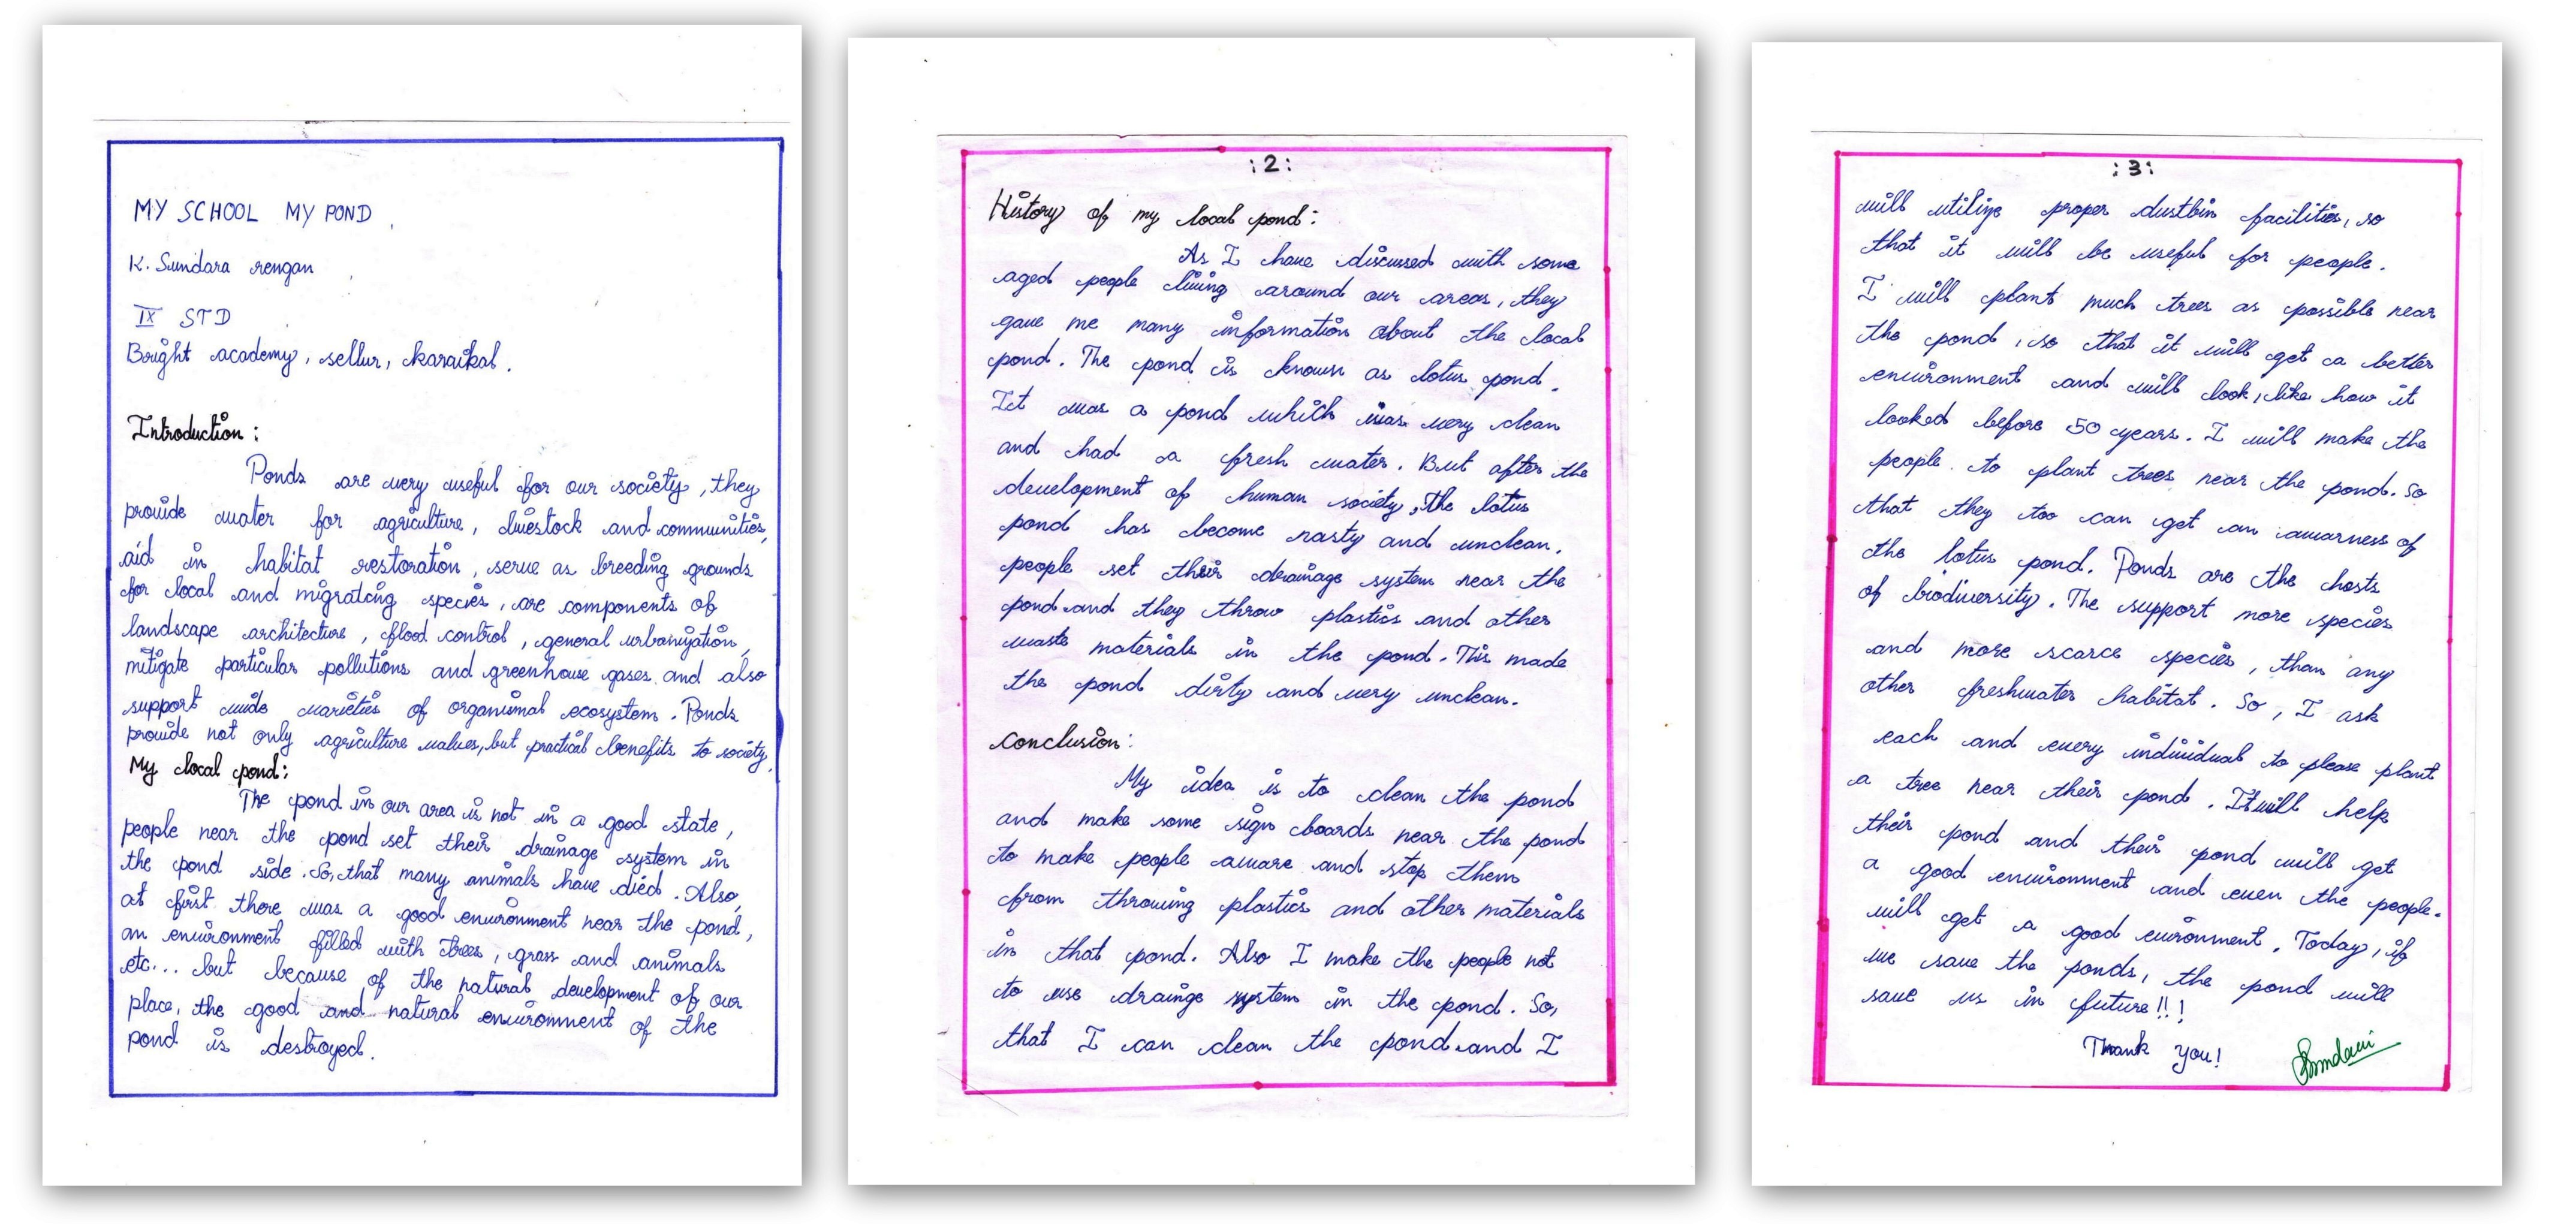 MY SCHOOL MY POND
K. Sundara rengan
IX STD
Bright academy, sellur, karaikal.
Introduction:
Ponds are very useful for our society, they
provide water for agriculture, livestock and communities,
aid in habitat restoration, serve as breeding grounds
for local and migrating species, are components of
landscape architecture, flood control, general urbanization,
mitigate particular pollutions and greenhouse gases and also
support wide varieties of organismal ecosystem. Ponds
provide not only agriculture values, but practical benefits to society.
My local pond:
The pond in our area is not in a good state,
people near the pond set their drainage system in
the pond side. So, that many animals have died. Also,
at first there was a good environment near the pond,
an environment filled with trees, grass and animals
etc... but because of the natural development of our
place, the good and natural environment of the
pond is destroyed.
:2:
History of my local pond:
As I have discussed with some
aged people living around our areas, they
gave me many information about the local
pond. The pond is known as lotus pond.
It was a pond which was very clean
and had a fresh water. But after the
development of human society, the lotus
pond has become nasty and unclean.
people set their drainage system near the
pond and they throw plastics and other
waste materials in the pond. This made
the pond dirty and very unclean.
conclusion:
My idea is to clean the pond
and make some sign boards near the pond
to make people aware and stop them
from throwing plastics and other materials
in that pond. Also I make the people not
to use drainge system in the pond. So,
that I can clean the pond and I
:3:
will utilize proper dustbin facilities, so
that it will be useful for people.
I will plant much trees as possible near
the pond, so that it will get a better
environment and will look, like how it
looked before 50 years. I will make the
people to plant trees near the pond. So
that they too can get an awarness of
the lotus pond. Ponds are the hosts
of biodiversity. The support more species
and more scarce species, than any
other freshwater habitat. So, I ask
each and every individual to please plant
a tree near their pond. It will help
their pond and their pond will get
a good environment and even the people.
will get a good euironment. Today, if
we save the ponds, the pond will
save us in future!!!
Thank you!